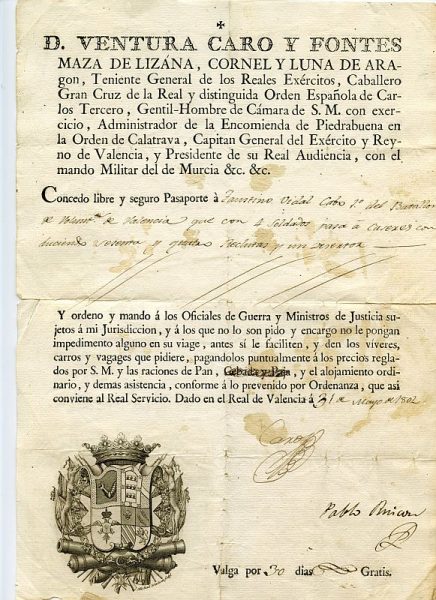 D. VENTURA CARO Y FONTES
MAZA DE LIZANA, CORNEL Y LUNA DE ARA-
gon, Teniente General de los Reales Exércitos, Caballero
Gran Cruz de la Real y distinguida Orden Española de Car-
los Tercero, Gentil-Hombre de Cámara de S. M. con exer-
cicio, Administrador de la Encomienda de Piedrabuena en
la Orden de Calatrava, Capitan General del Exército y Rey-
no de Valencia, y Presidente de su Real Audiencia, con el
mando Militar del de Murcia &c. &c.
Concedo libre y seguro Pasaporte á Faustino Vidal Cabo 1º del Batallon
de Volunt.s de Valencia que con 4 Soldados pasa a
duciendo Reclutas y un desertor
Y ordeno y mando á los Oficiales de Guerra y Ministros de Justicia su-
jetos á mi Jurisdiccion, y á los que no lo son pido y encargo no le pongan
impedimento alguno en su viage, antes sí le faciliten, y den los víveres,
carros y vagages que pidiere, pagandolos puntualmente á los precios regla-
dos por S. M. y las raciones de Pan, Cebada y Paja, y el alojamiento ordi-
nario, y demas asistencia, conforme á lo prevenido por Ordenanza, que así
conviene al Real Servicio. Dado en el Real de Valencia á 31 de Mayo de 1802
Caro
Pablo
Valga por 30 dias Gratis.